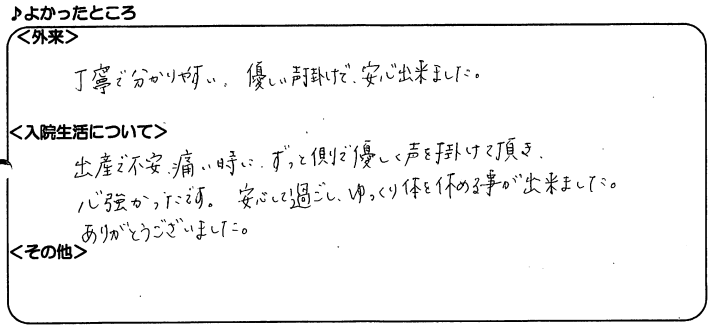 ♪よかったところ
<外来>
丁寧で分かりやすい。優しい声掛けで、安心出来ました。
<入院生活について>
出産で不安、痛い時に、ずっと側で優しく声を掛けて頂き、
心強かったです。安心して過ごし、ゆっくり体を休める事が出来ました。
ありがとうございました。
<その他>